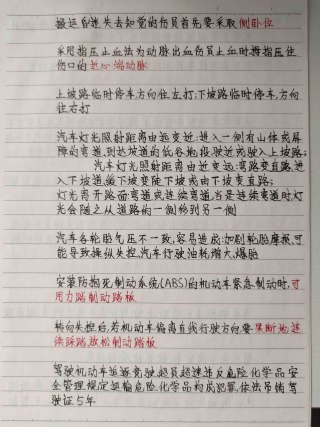 搬运昏迷失去知觉的伤员首先要采取侧卧位
采用指压止血法为动脉出血伤员止血时拇指压住
伤口的近心端动脉
上坡路临时停车,方向往左打,下坡路临时停车,方向
往右打
汽车灯光照射距离由远变近:进入一侧有山体或屏
障的弯道,到达坡道的低谷地段,驶近或驶入上坡路;
汽车灯光照射距离由近变远:弯路变直路,进
入下坡道,缓下坡变陡下坡或由下坡变直路;
灯光离开路面:弯道或连续弯道,当是连续弯道时,灯
光会随之从道路的一侧移到另一侧
汽车各轮胎气压不一致,容易造成:加剧轮胎磨损,可
能导致操纵失控,汽车行驶油耗增大,爆胎
安装防抱死制动系统(ABS)的机动车紧急制动时,可
用力踏制动踏板
转向失控后,若机动车偏离直线行驶方向,要果断地连
续踩踏,放松制动踏板
驾驶机动车追逐竞驶,超员超速,违反危险化学品安
全管理规定运输危险化学品构成犯罪,依法吊销驾
驶证5年